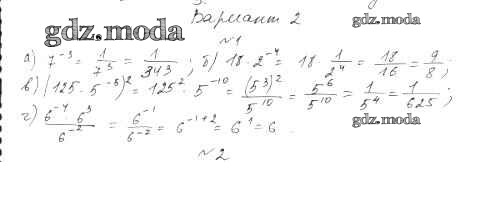 Вариант 2
gdz.moda
gdz.moda
№1
а) 7^-3 = 1/7^3 = 1/343; б) 18 · 2^-4 = 18 · 1/2^4 = 18/16 = 9/8;
в) (125 · 5^-5)^2 = 125^2 · 5^-10 = (5^3)^2/5^10 = 5^6/5^10 = 1/5^4 = 1/625;
г) 6^-4 · 6^3/6^-2 = 6^-1/6^-2 = 6^-1+2 = 6^1 = 6.
gdz.moda
№2